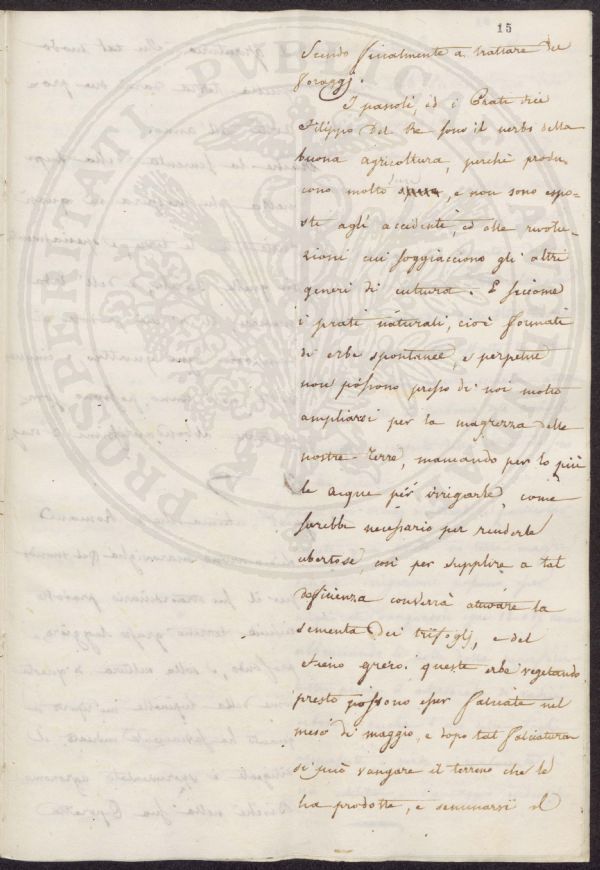 15
Scendo finalmente a trattare dei
foraggi.
I pascoli, ed i Prati dice
Filippo del Re sono il nerbo della
buona agricoltura, perchè produ-
cono molto, e non sono espo-
sti agli accidenti, ed alle rivolu-
zioni cui soggiacciono gli altri
generi di cultura. E siccome
i prati naturali, cioè formati
di erbe spontanee, e perpetue
non possono presso di noi molto
ampliarsi per la magrezza delle
nostre Terre, mancando per lo più
le acque per irrigarle, come
sarebbe necessario per renderle
ubertose, così per supplire a tal
deficienza converrà attivare la
sementa dei trifoglj, e del
Fieno greco: queste erbe vegetando
presto possono esser falciate nel
mese di maggio, e dopo tal falciatura
si può vangare il terreno che le
ha prodotte, e seminarvi il
PROSPERITATI PUBLICAE